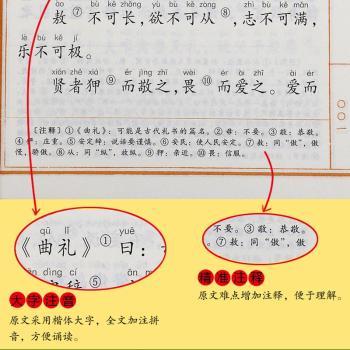 ào bù kě zhǎng yù bù kě zòng zhì bù kě mǎn
敖⑦不可长,欲不可从⑧,志不可满,
lè bù kě jí
乐不可极。
xián zhě xiá ér jìng zhī wèi ér ài zhī ài ér
贤者狎⑨而敬之,畏⑩而爱之。爱而
[注释]①《曲礼》:可能是古代礼书的篇名。②毋:不要。③敬:恭敬。
④俨:庄重。⑤安定辞:说话要谨慎。⑥安民:使人民安定。⑦敖:同“傲”,傲
慢,骄傲。⑧从:同“纵”,放纵。⑨狎:亲近。⑩畏:信服。
〇〇一
qū lǐ yuē
《曲礼》①曰:
ān dìng cí
⑤
不要。③敬:恭敬。
。⑦敖:同“傲”,傲
大字注音
原文采用楷体大字,全文加注拼
音,方便诵读。
精准注释
原文难点增加注释,便于理解。